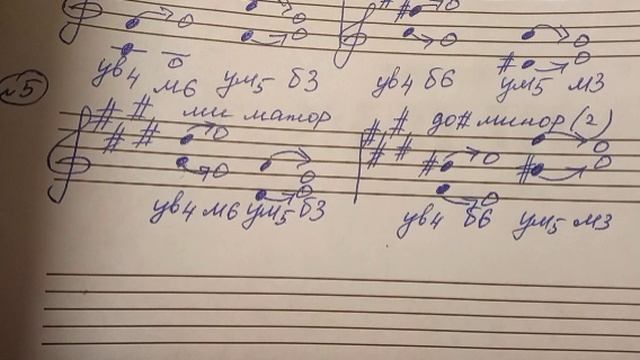 ув4 м6 ум5 б3 ув4 б6 ум5 м3
№5
ми мажор до# минор (г)
ув4 м6 ум5 б3 ув4 б6 ум5 м3